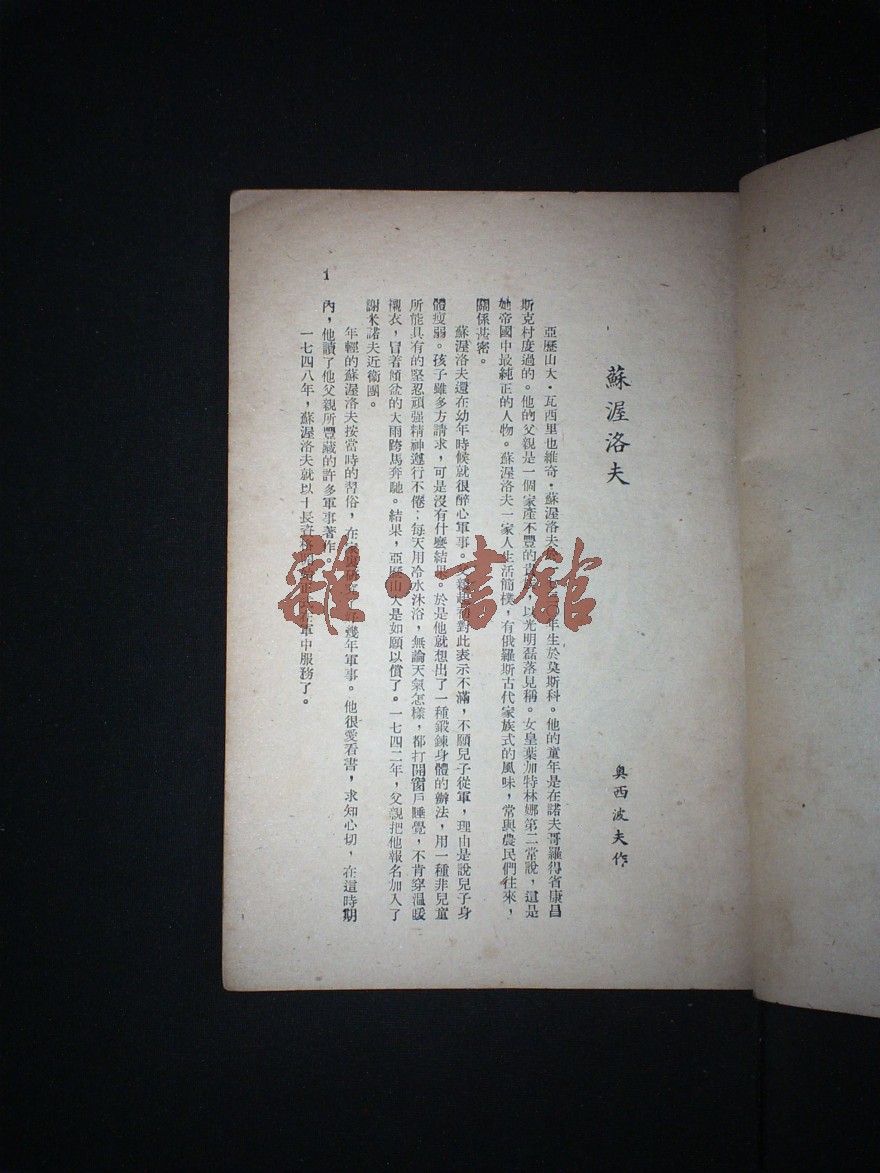 蘇渥洛夫
奥西波夫作
亞歷山大・瓦西里也維奇・蘇渥洛夫於一七三〇年生於莫斯科。他的童年是在諾夫哥羅得省康昌
斯克村度過的。他的父親是一個家產不豐的貴族，以光明磊落見稱。女皇葉加特林娜第二常說，這是
她帝國中最純正的人物。蘇渥洛夫一家人生活簡樸，有俄羅斯古代家族式的風味，常與農民們往來，
關係甚密。
蘇渥洛夫還在幼年時候就很醉心軍事。父親起初對此表示不滿，不願兒子從軍，理由是說兒子身
體瘦弱。孩子雖多方請求，可是沒有什麽結果。於是他就想出了一種鍛鍊身體的辦法，用一種非兒童
所能具有的堅忍頑强精神遵行不倦：每天用冷水沐浴，無論天氣怎樣，都打開窗戶睡覺，不肯穿溫暖
襯衣，冒着傾盆的大雨跨馬奔馳。結果，亞歷山大是如願以償了。一七四二年，父親把他報名加入了
謝米諾夫近衞團。
年輕的蘇渥洛夫按當時的習俗，在家裏 幾年軍事。他很愛看書，求知心切，在這時期
內，他讀了他父親所豐藏的許多軍事著作。
一七四八年，蘇渥洛夫就以十長資格 在軍中服務了。
1
雜・書館